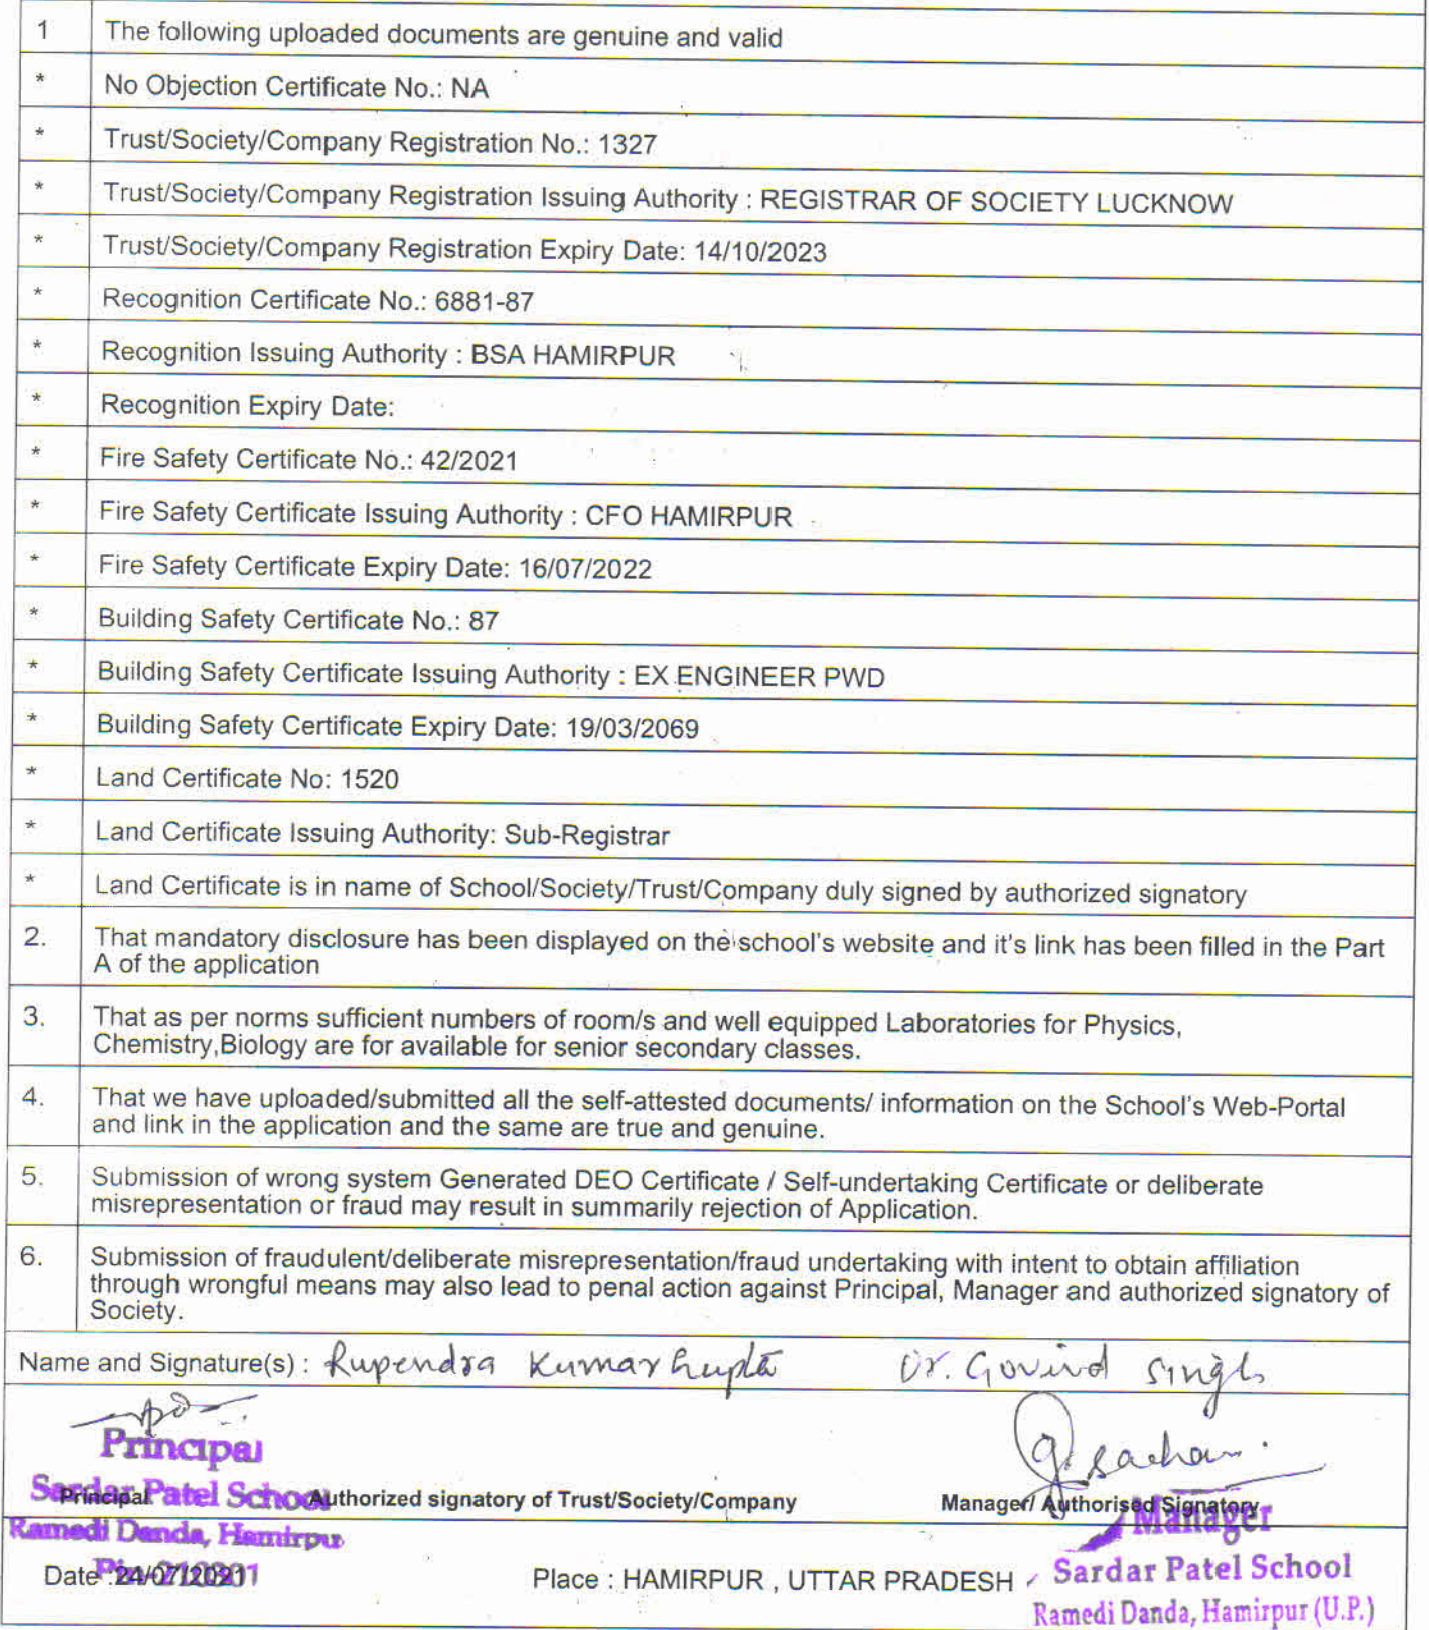 1 The following uploaded documents are genuine and valid
* No Objection Certificate No.: NA
* Trust/Society/Company Registration No.: 1327
* Trust/Society/Company Registration Issuing Authority : REGISTRAR OF SOCIETY LUCKNOW
* Trust/Society/Company Registration Expiry Date: 14/10/2023
* Recognition Certificate No.: 6881-87
* Recognition Issuing Authority : BSA HAMIRPUR
* Recognition Expiry Date:
* Fire Safety Certificate No.: 42/2021
* Fire Safety Certificate Issuing Authority : CFO HAMIRPUR
* Fire Safety Certificate Expiry Date: 16/07/2022
* Building Safety Certificate No.: 87
* Building Safety Certificate Issuing Authority : EX ENGINEER PWD
* Building Safety Certificate Expiry Date: 19/03/2069
* Land Certificate No: 1520
* Land Certificate Issuing Authority: Sub-Registrar
* Land Certificate is in name of School/Society/Trust/Company duly signed by authorized signatory
2. That mandatory disclosure has been displayed on the school's website and it's link has been filled in the Part
A of the application
3. That as per norms sufficient numbers of room/s and well equipped Laboratories for Physics,
Chemistry,Biology are for available for senior secondary classes.
4. That we have uploaded/submitted all the self-attested documents/ information on the School's Web-Portal
and link in the application and the same are true and genuine.
5. Submission of wrong system Generated DEO Certificate / Self-undertaking Certificate or deliberate
misrepresentation or fraud may result in summarily rejection of Application.
6. Submission of fraudulent/deliberate misrepresentation/fraud undertaking with intent to obtain affiliation
through wrongful means may also lead to penal action against Principal, Manager and authorized signatory of
Society.
Name and Signature(s) : Rupendra Kumar Gupta Dr. Govind Singh
Principal
Sardar Patel School
Principal Authorized signatory of Trust/Society/Company Manager/ Authorised Signatory
Manager
Ramedi Danda, Hamirpur
Date : 24/07/2021 Place : HAMIRPUR , UTTAR PRADESH
Sardar Patel School
Ramedi Danda, Hamirpur (U.P.)